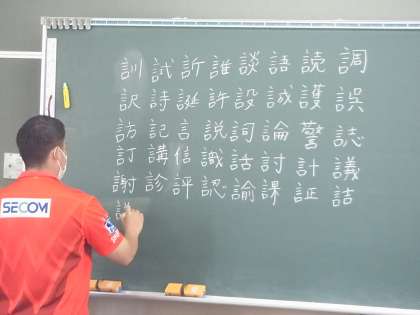 調誤誌議詰
読護警計証
語誠論討課
談設詞話諭
誰許説識認
訴誕言信評
試詩記講診
訓訳訪訂謝
SECOM